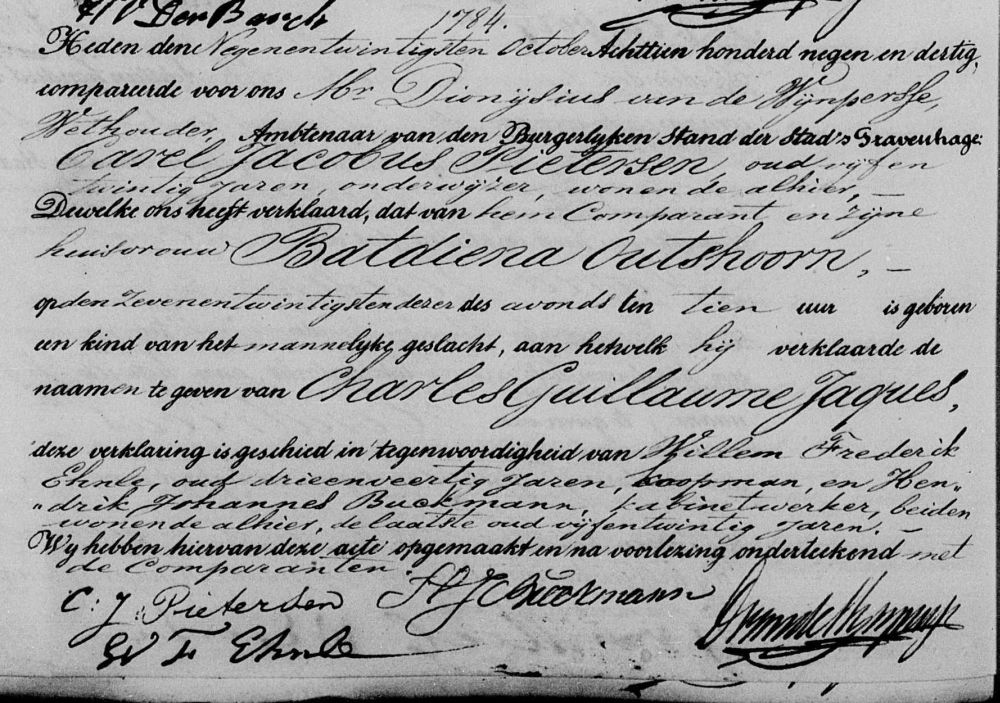 H V Den Bosch
1784.
Heden den Negenentwintigsten October Achttien honderd negen en dertig,
compareerde voor ons Mr. Dionysius van de Wijnpersse,
Wethouder, Ambtenaar van den Burgerlyken Stand der Stad 's Gravenhage:
Carel Jacobus Pietersen, oud vijf en
twintig Jaren, onderwijzer, wonende alhier, –
Dewelke ons heeft verklaard, dat van hem Comparant en zijne
huisvrouw Batdiena Outshoorn, –
op den Zevenentwintigsten dezer des avonds ten tien uur is geboren
een kind van het mannelyke geslacht, aan hetwelk hij verklaarde de
naamen te geven van Charles Guillaume Jaques,
deze verklaring is geschied in tegenwoordigheid van Willem Frederik
Ehnle, oud drieenveertig Jaren, koopman, en Hen„
„drik Johannes Buckmann, kabinetwerker, beiden
wonende alhier, de laatste oud vijfentwintig Jaren. –
Wy hebben hiervan deze acte opgemaakt en na voorlezing onderteekend met
de Comparanten.
C. J. Pietersen H J Buckmann
W F Ehnle